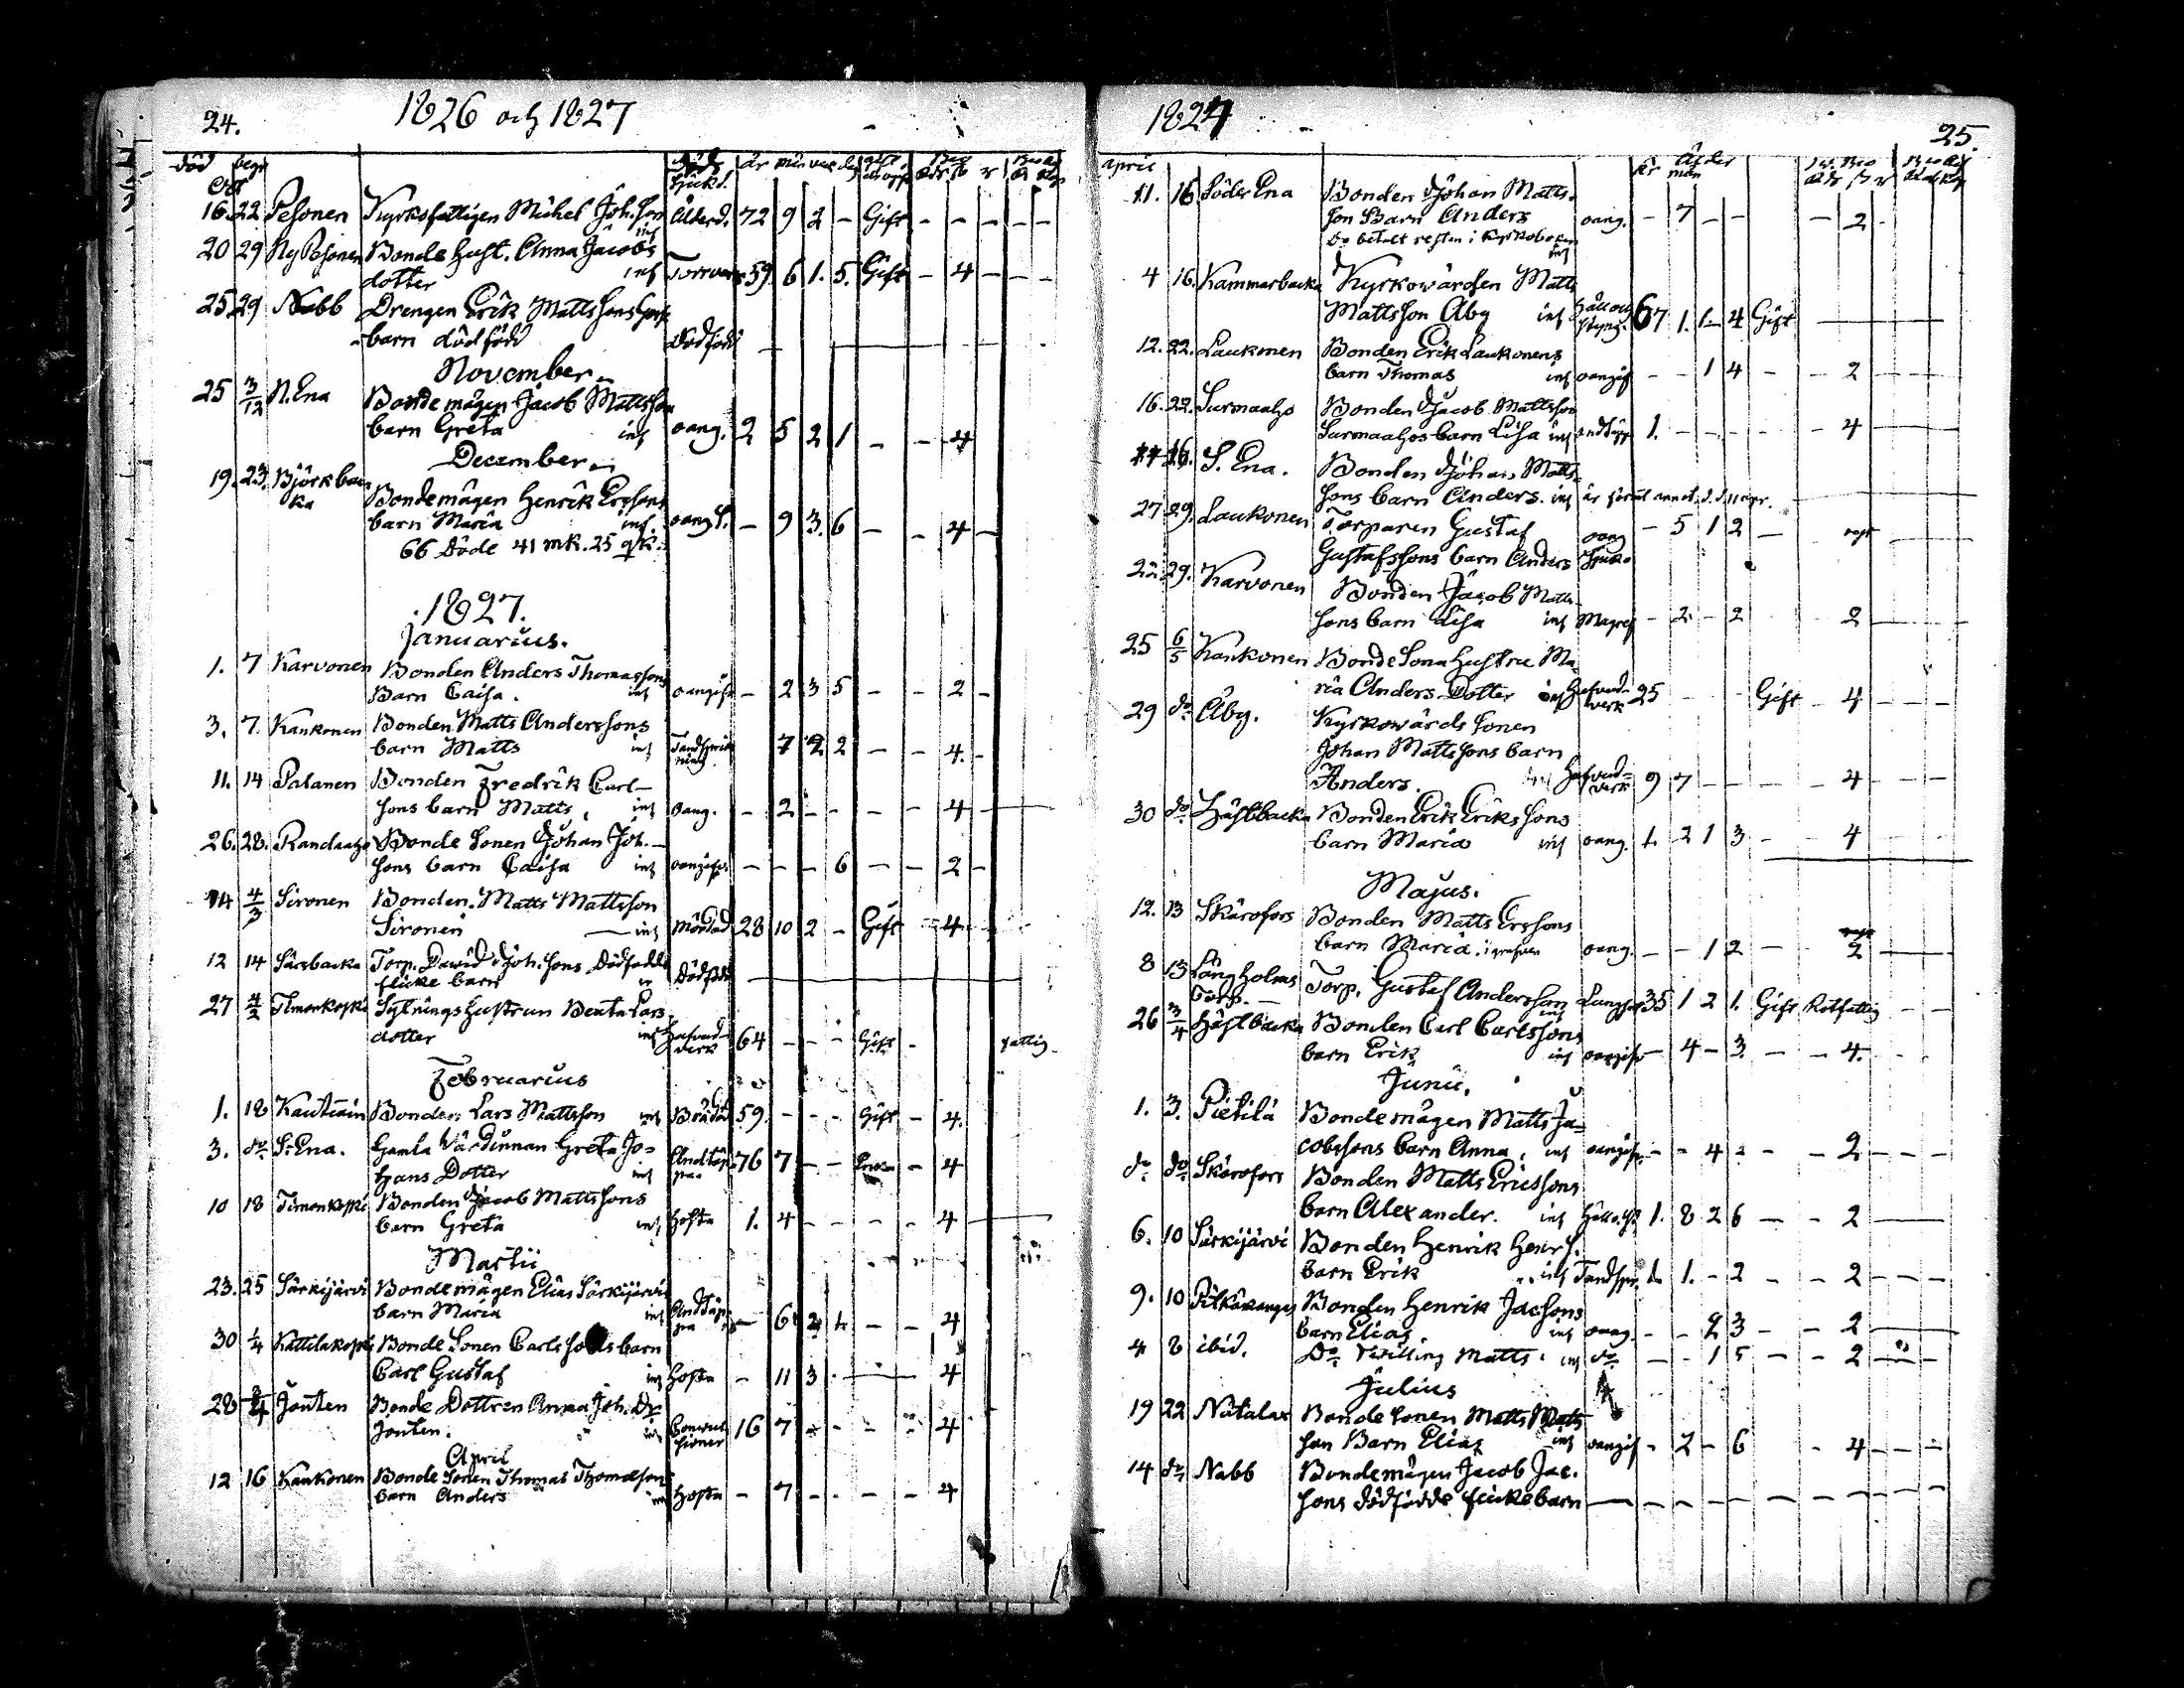 24.
1826 och 1827
död begr
år mån
16. 22 Pesonen Kyrkofattigen Michel Joh. Son Ålderd. 72 9 2 - Gift - - - - -
20 29 Ny Pesonen Bonde Hust. Anna Jacobs
dotter 59. 6 1. 5. Gift - 4 - - -
25 29 Nabb Drengen Erik Mattssons
barn dödfödd Dödfödd
November
25 3/12 N. Ena Bonde mågen Jacob Mattsson
barn Greta ins oang. 2 5 2 1 - - 4
December
19. 23. Björkbac
ka Bondemågen Henrik Ersons
barn Maria ins. oang. - 9 3. 6 - - 4 -
66 Döde 41 mk. 25 qk.
1827.
Januarius.
1. 7 Karvonen Bonden Anders Thomassons
Barn Caisa. ins oangif - 2 3 5 - - 2 -
3. 7. Kankonen Bonden Matts Anderssons
barn Matts ins 7 2 2 - - 4. -
11. 14 Palanen Bonden Fredrik Carl-
sons barn Matts, ins oang. - 2 - - - - 4 -
26. 28. Randaaho Bonde Sonen Johan Joh.
sons barn Caisa ins oangif. - - - 6 - - 2 -
14 4/3 Sironen Bonden Matts Mattsson
Sironen ins Mördad 28 10 2 - Gift 4
12 14 Särsbacka Torp. David Joh. sons Dödfödde
flicke barn Dödfödd
27 4/2 Timonkoski Sytningshustrun Beata Lars
dotter ins Hufvud-
verk 64 - - - Gift - fattig
Februarius
1. 18 Kautiain Bonden Lars Mattsson ins Bråddöd 59. - - - Gift - 4.
3. do S. Ena. Gamla Värdinnan Greta Jo-
hans Dotter ins Andtäp-
pa 76 7 - - Enka - 4
10 18 Timonkoski Bonden Jacob Mattssons
barn Greta ins hosta 1. 4 - - - - 4
Martii
23. 25 Särkijärvi Bondemågen Elias Särkijärvi
barn Maria ins Andtäp-
pa - 6 2 4 - - 4
30 1/4 Kattilakoski Bonde Sonen Carls sons barn
Carl Gustaf ins hosta - 11 3 - 4
28 Jouten Bonde Dottren Anna Joh. Dr
Jouten. ins 16 7 - - - - 4
April
12 16 Kankonen Bonde Sonen Thomas Thomasson
barn Anders ins hosta - 7 - - - - 4
1827
25.
april
Ålder
år mån
11. 16 Söder Ena Bonden Johan Matts.
son Barn Anders oang. - 7 - - - 2 -
do betalt resten i Kyrkobogen
ins
4 16. Kammarbacka Kyrkowärden Matts
Mattsson Aby ins Håll och
styng. 67 1. 1 - 4 Gift
12. 22. Laukonen Bonden Erik Laukonens
barn Thomas ins oangif - - 1 4 - - 2
16. 22. Surmaaho Bonden Jacob Mattsson
Surmaahos barn Lisa ins andtäpp 1. - - - - 4
S. Ena. Bonden Johan Matts
sons barn Anders. ins är förut annot. d. 11 apr.
27 29. Laukonen Torparen Gustaf oang - 5 1 2 -
Gustafssons barn Anders sjuk.
22. 29. Karvonen Bonden Jacob Matts
sons barn Lisa ins - 2 - 2 2
25 6/5 Kankonen Bonde Sona hustru Ma-
ria Anders Dotter ins hufvud-
verk 25 - - - Gift - 4
29 do Åby. Kyrkowärds Sonen
Johan Mattssons barn
Anders. hufvud-
verk 9 7 - - - 4
30 do Hästbacka Bonden Erik Erikssons
barn Maria ins oang. 1. 2 1 3 - 4
Majus.
12. 13 Skärofors Bonden Matts Erssons
barn Maria. oang. - - 1 2 - 2
8 13 Långholms
Torp. Torp. Gustaf Andersson ins Lungsot 35 1 2 1. Gift Rotfattig
26 Hästbacka Bonden Carl Carlssons
barn Erik ins oangif - 4 - 3 - - 4.
Junii.
1. 3. Pietilä Bondemågen Matts Ja-
cobssons barn Anna, ins oangif. - - 4 - - 2 - - -
do do Skärofors Bonden Matts Ericssons
barn Alexander. ins 1. 8 2 6 - - 2
6. 10 Särkijärvi Bonden Henrik Henrs.
barn Erik ins Tandspr. 1. - 2 - - 2 - - -
9. 10 Bonden Henrik Jacsons
barn Elias ins oang. - - 2 3 - - 2
4 8 ibid. Do Twilling Matts. ins do - - 1 5 - - 2
Julius
19 22 Nätalax Bonde Sonen Matts Matts
son Barn Elias ins oangif - 2 - 6 - 4 - - -
14 do Nabb Bondemågen Jacob Jac.
sons dödfödde flickebarn